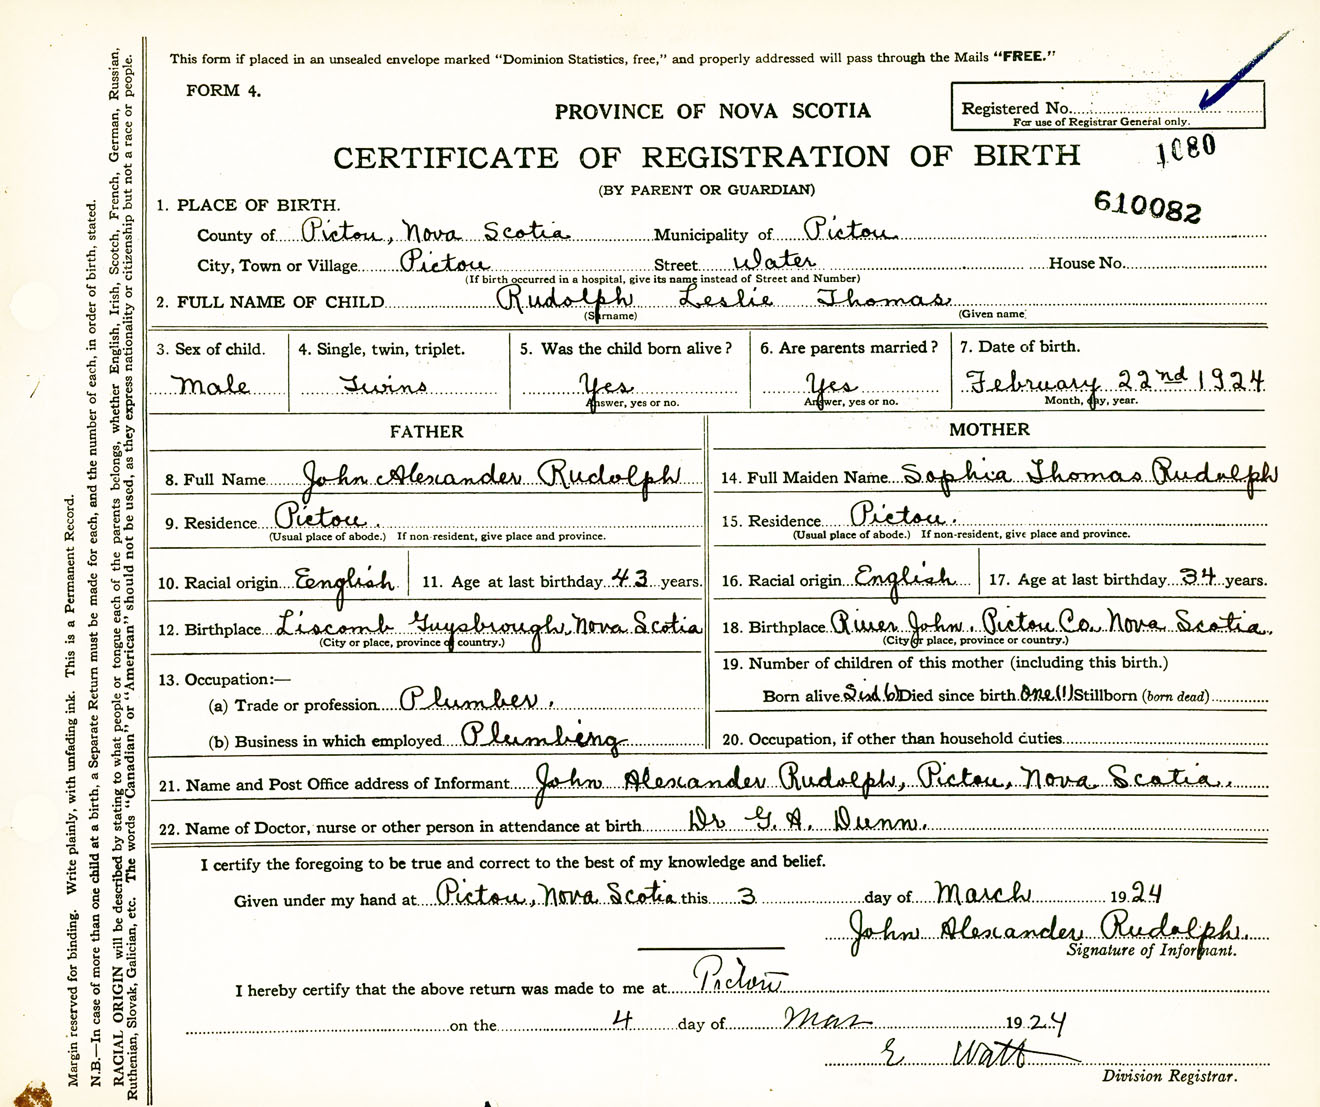 This form if placed in an unsealed envelope marked "Dominion Statistics, free," and properly addressed will pass through the Mails "FREE."
FORM 4.
PROVINCE OF NOVA SCOTIA
Registered No.
For use of Registrar General only.
CERTIFICATE OF REGISTRATION OF BIRTH
1080
(BY PARENT OR GUARDIAN)
610082
1. PLACE OF BIRTH.
County of Pictou, Nova Scotia Municipality of Pictou
City, Town or Village Pictou Street Water House No.
(If birth occurred in a hospital, give its name instead of Street and Number)
2. FULL NAME OF CHILD Rudolph Leslie Thomas
(Surname) (Given name)
3. Sex of child. 4. Single, twin, triplet. 5. Was the child born alive? 6. Are parents married? 7. Date of birth.
Male Twins Yes Yes February 22nd 1924
Answer, yes or no. Answer, yes or no. Month, day, year.
FATHER MOTHER
8. Full Name John Alexander Rudolph 14. Full Maiden Name Sophia Thomas Rudolph
9. Residence Pictou. 15. Residence Pictou.
(Usual place of abode.) If non-resident, give place and province. (Usual place of abode.) If non-resident, give place and province.
10. Racial origin Eenglish 11. Age at last birthday 43 years. 16. Racial origin English 17. Age at last birthday 34 years.
12. Birthplace Liscomb Guysbrough, Nova Scotia 18. Birthplace River John. Pictou Co. Nova Scotia.
(City or place, province or country.) (City or place, province or country.)
19. Number of children of this mother (including this birth.)
13. Occupation:—
(a) Trade or profession Plumber. Born alive Six(6) Died since birth One(1) Stillborn (born dead)
(b) Business in which employed Plumbing 20. Occupation, if other than household duties
21. Name and Post Office address of Informant John Alexander Rudolph, Pictou, Nova Scotia.
22. Name of Doctor, nurse or other person in attendance at birth Dr G. A. Dunn.
I certify the foregoing to be true and correct to the best of my knowledge and belief.
Given under my hand at Pictou, Nova Scotia this 3 day of March 1924
John Alexander Rudolph.
Signature of Informant.
I hereby certify that the above return was made to me at Pictou
on the 4 day of Mar 1924
E Watt
Division Registrar.
Margin reserved for binding. Write plainly, with unfading ink. This is a Permanent Record.
N.B.—In case of more than one child at a birth, a Separate Return must be made for each, and the number of each, in order of birth, stated.
RACIAL ORIGIN will be described by stating to what people or tongue each of the parents belongs, whether English, Irish, Scotch, French, German, Russian,
Ruthenian, Slovak, Galician, etc. The words "Canadian" or "American" should not be used, as they express nationality or citizenship but not a race or people.